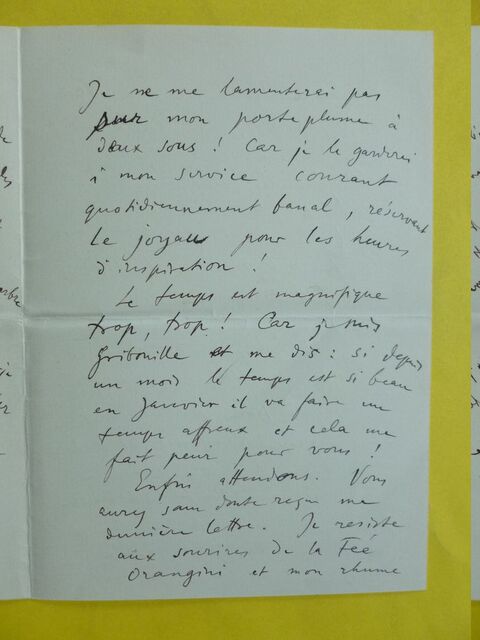 Je ne me lamenterai pas
sur mon porte plume à
deux sous ! Car je le garderai
à mon service courant
quotidiennement banal, réservant
le joyau pour les heures
d'inspiration !
Le temps est magnifique
trop, trop ! Car je suis
Gribouille et me dis : si depuis
un mois le temps est si beau
en Janvier il va faire un
temps affreux et cela me
fait peur pour vous !
Enfin attendons. Vous
aurez sans doute reçu ma
dernière lettre. Je resiste
aux sourires de la Fée
Orangini et mon rhume